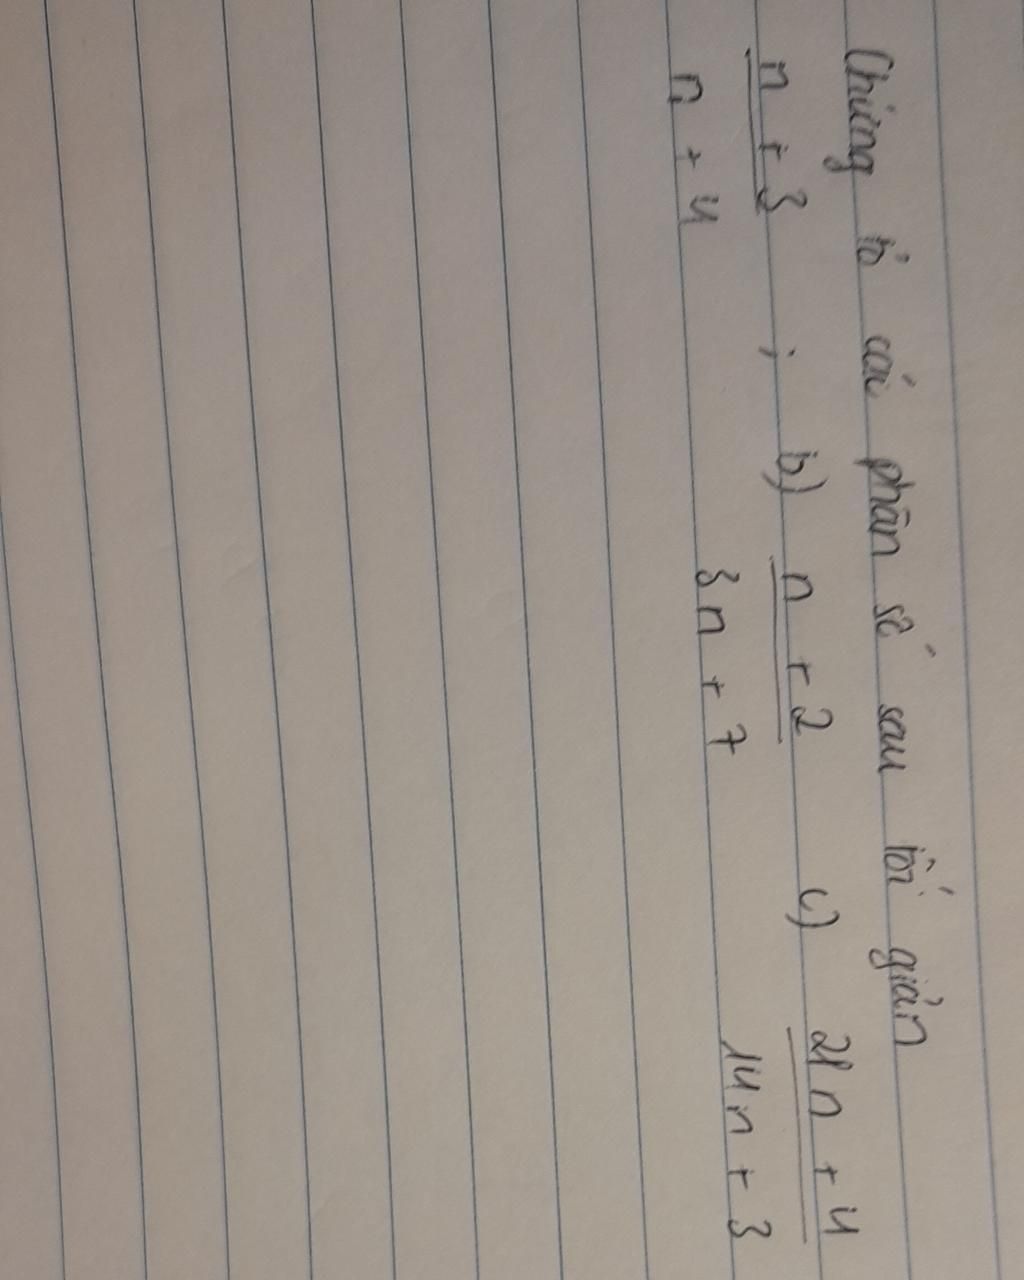 Chứng tỏ các phân số sau tối giản
n + 3 ; b) n + 2 c) 21n + 4
n + 4 3n + 7 14n + 3